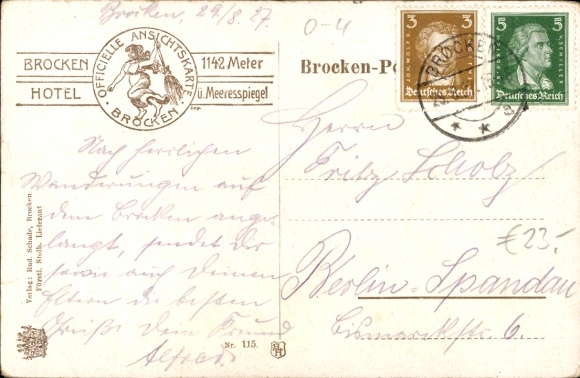 Brocken, 29/8. 27.
0-4
BROCKEN
HOTEL
OFFICIELLE ANSICHTSKARTE
BROCKEN
1142 Meter
ü. Meeresspiegel
Brocken-Po
3 3
JOH. WOLFG.
Deutsches Reich
5 5
FRIEDRICH V. SCHILLER
Deutsches Reich
BROCKEN
Nach herrlichen
Wanderungen auf
dem Brocken ange-
langt, sendet Dir
sowie auch Deinen
Eltern die besten
Grüße Dein Freund
Alfred.
Herrn
Fritz Scholz
Berlin-Spandau
Bismarckstr. 6.
€23.-
Verlag: Rud. Schade, Brocken.
Fürstl. Stolb. Lieferant
Nr. 115.